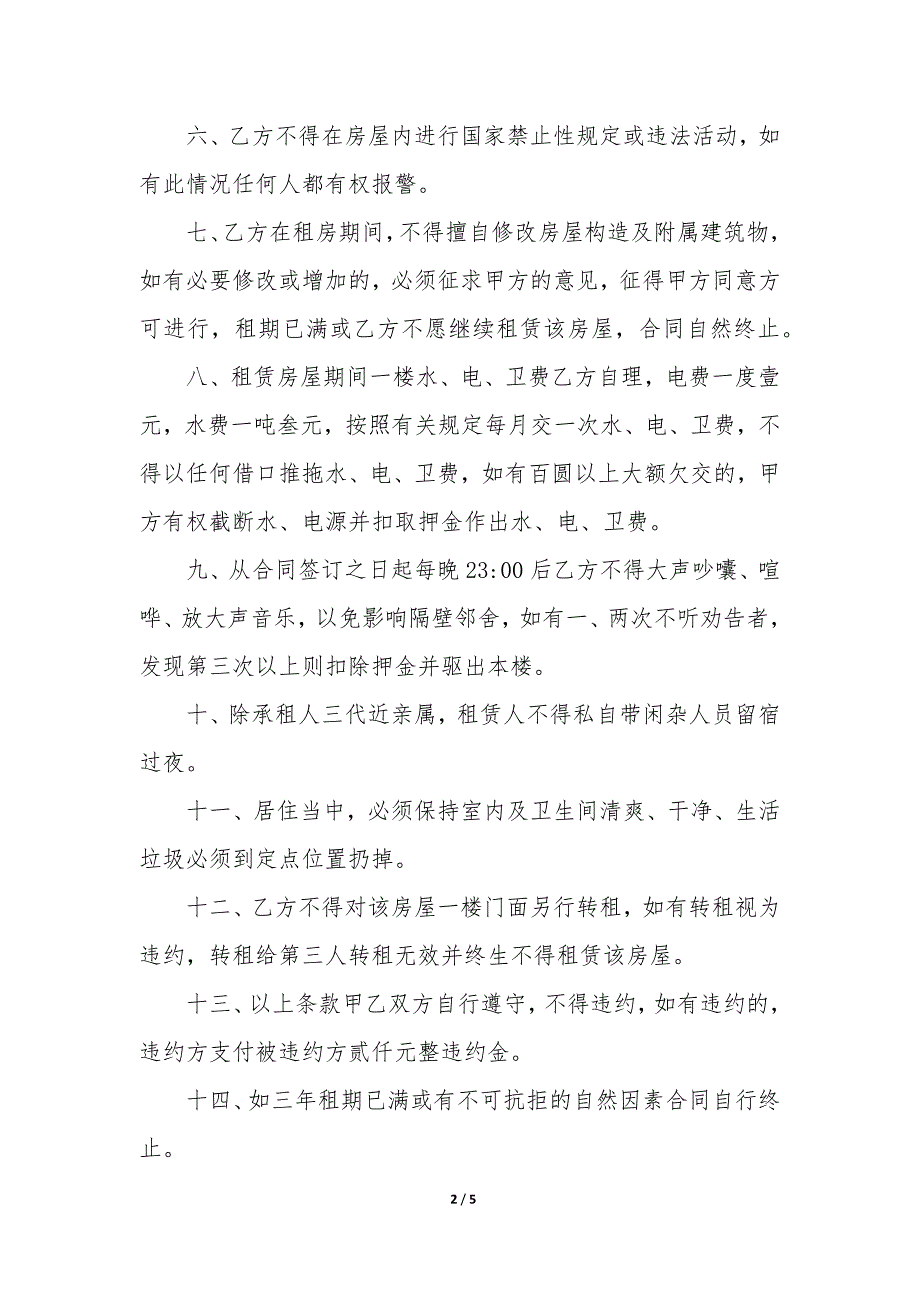 六、乙方不得在房屋内进行国家禁止性规定或违法活动，如
有此情况任何人都有权报警。
七、乙方在租房期间，不得擅自修改房屋构造及附属建筑物，
如有必要修改或增加的，必须征求甲方的意见，征得甲方同意方
可进行，租期已满或乙方不愿继续租赁该房屋，合同自然终止。
八、租赁房屋期间一楼水、电、卫费乙方自理，电费一度壹
元，水费一吨叁元，按照有关规定每月交一次水、电、卫费，不
得以任何借口推拖水、电、卫费，如有百圆以上大额欠交的，甲
方有权截断水、电源并扣取押金作出水、电、卫费。
九、从合同签订之日起每晚 23:00 后乙方不得大声吵嚷、喧
哗、放大声音乐，以免影响隔壁邻舍，如有一、两次不听劝告者，
发现第三次以上则扣除押金并驱出本楼。
十、除承租人三代近亲属，租赁人不得私自带闲杂人员留宿
过夜。
十一、居住当中，必须保持室内及卫生间清爽、干净、生活
垃圾必须到定点位置扔掉。
十二、乙方不得对该房屋一楼门面另行转租，如有转租视为
违约，转租给第三人转租无效并终生不得租赁该房屋。
十三、以上条款甲乙双方自行遵守，不得违约，如有违约的，
违约方支付被违约方贰仟元整违约金。
十四、如三年租期已满或有不可抗拒的自然因素合同自行终
止。
2 / 5